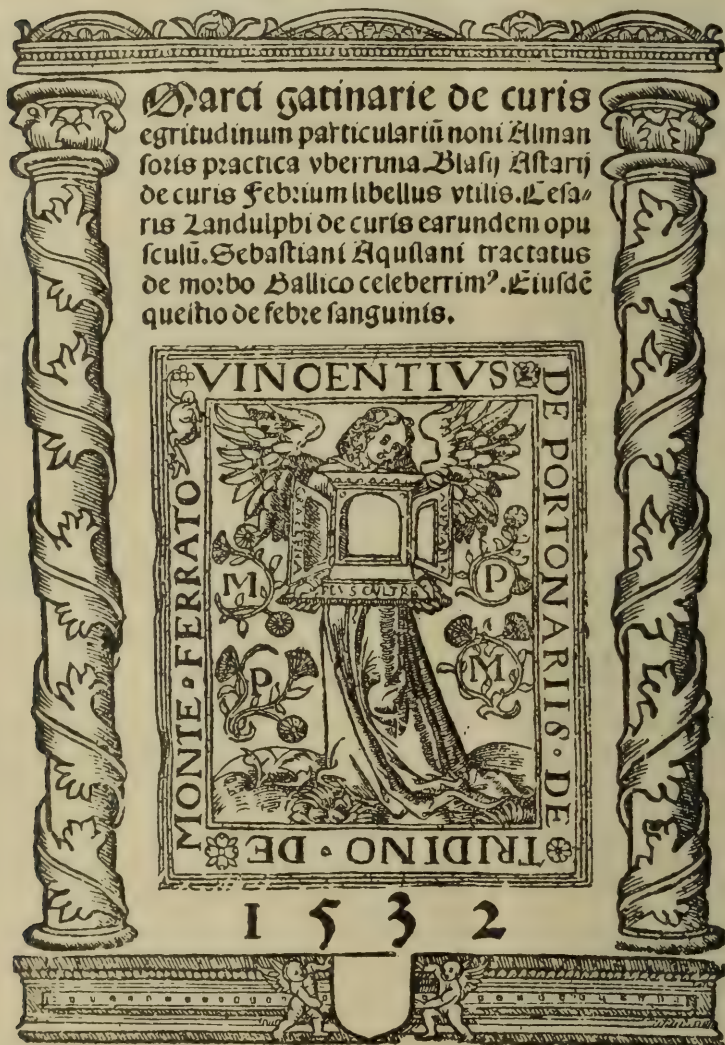 Marci gatinarie de curis
egritudinum particulariū noni Alman
soris practica vberrima. Blasij Astarij
de curis Febrium libellus vtilis. Cesa-
ris Landulphi de curis earundem opu
sculū. Sebastiani Aquilani tractatus
de morbo Gallico celeberrimꝰ. Eiusdē
questio de febre sanguinis.
VINCENTIVS
DE PORTONARIIS · DE
TRIDINO · DE
MONTE · FERRATO
M P
P M
1532